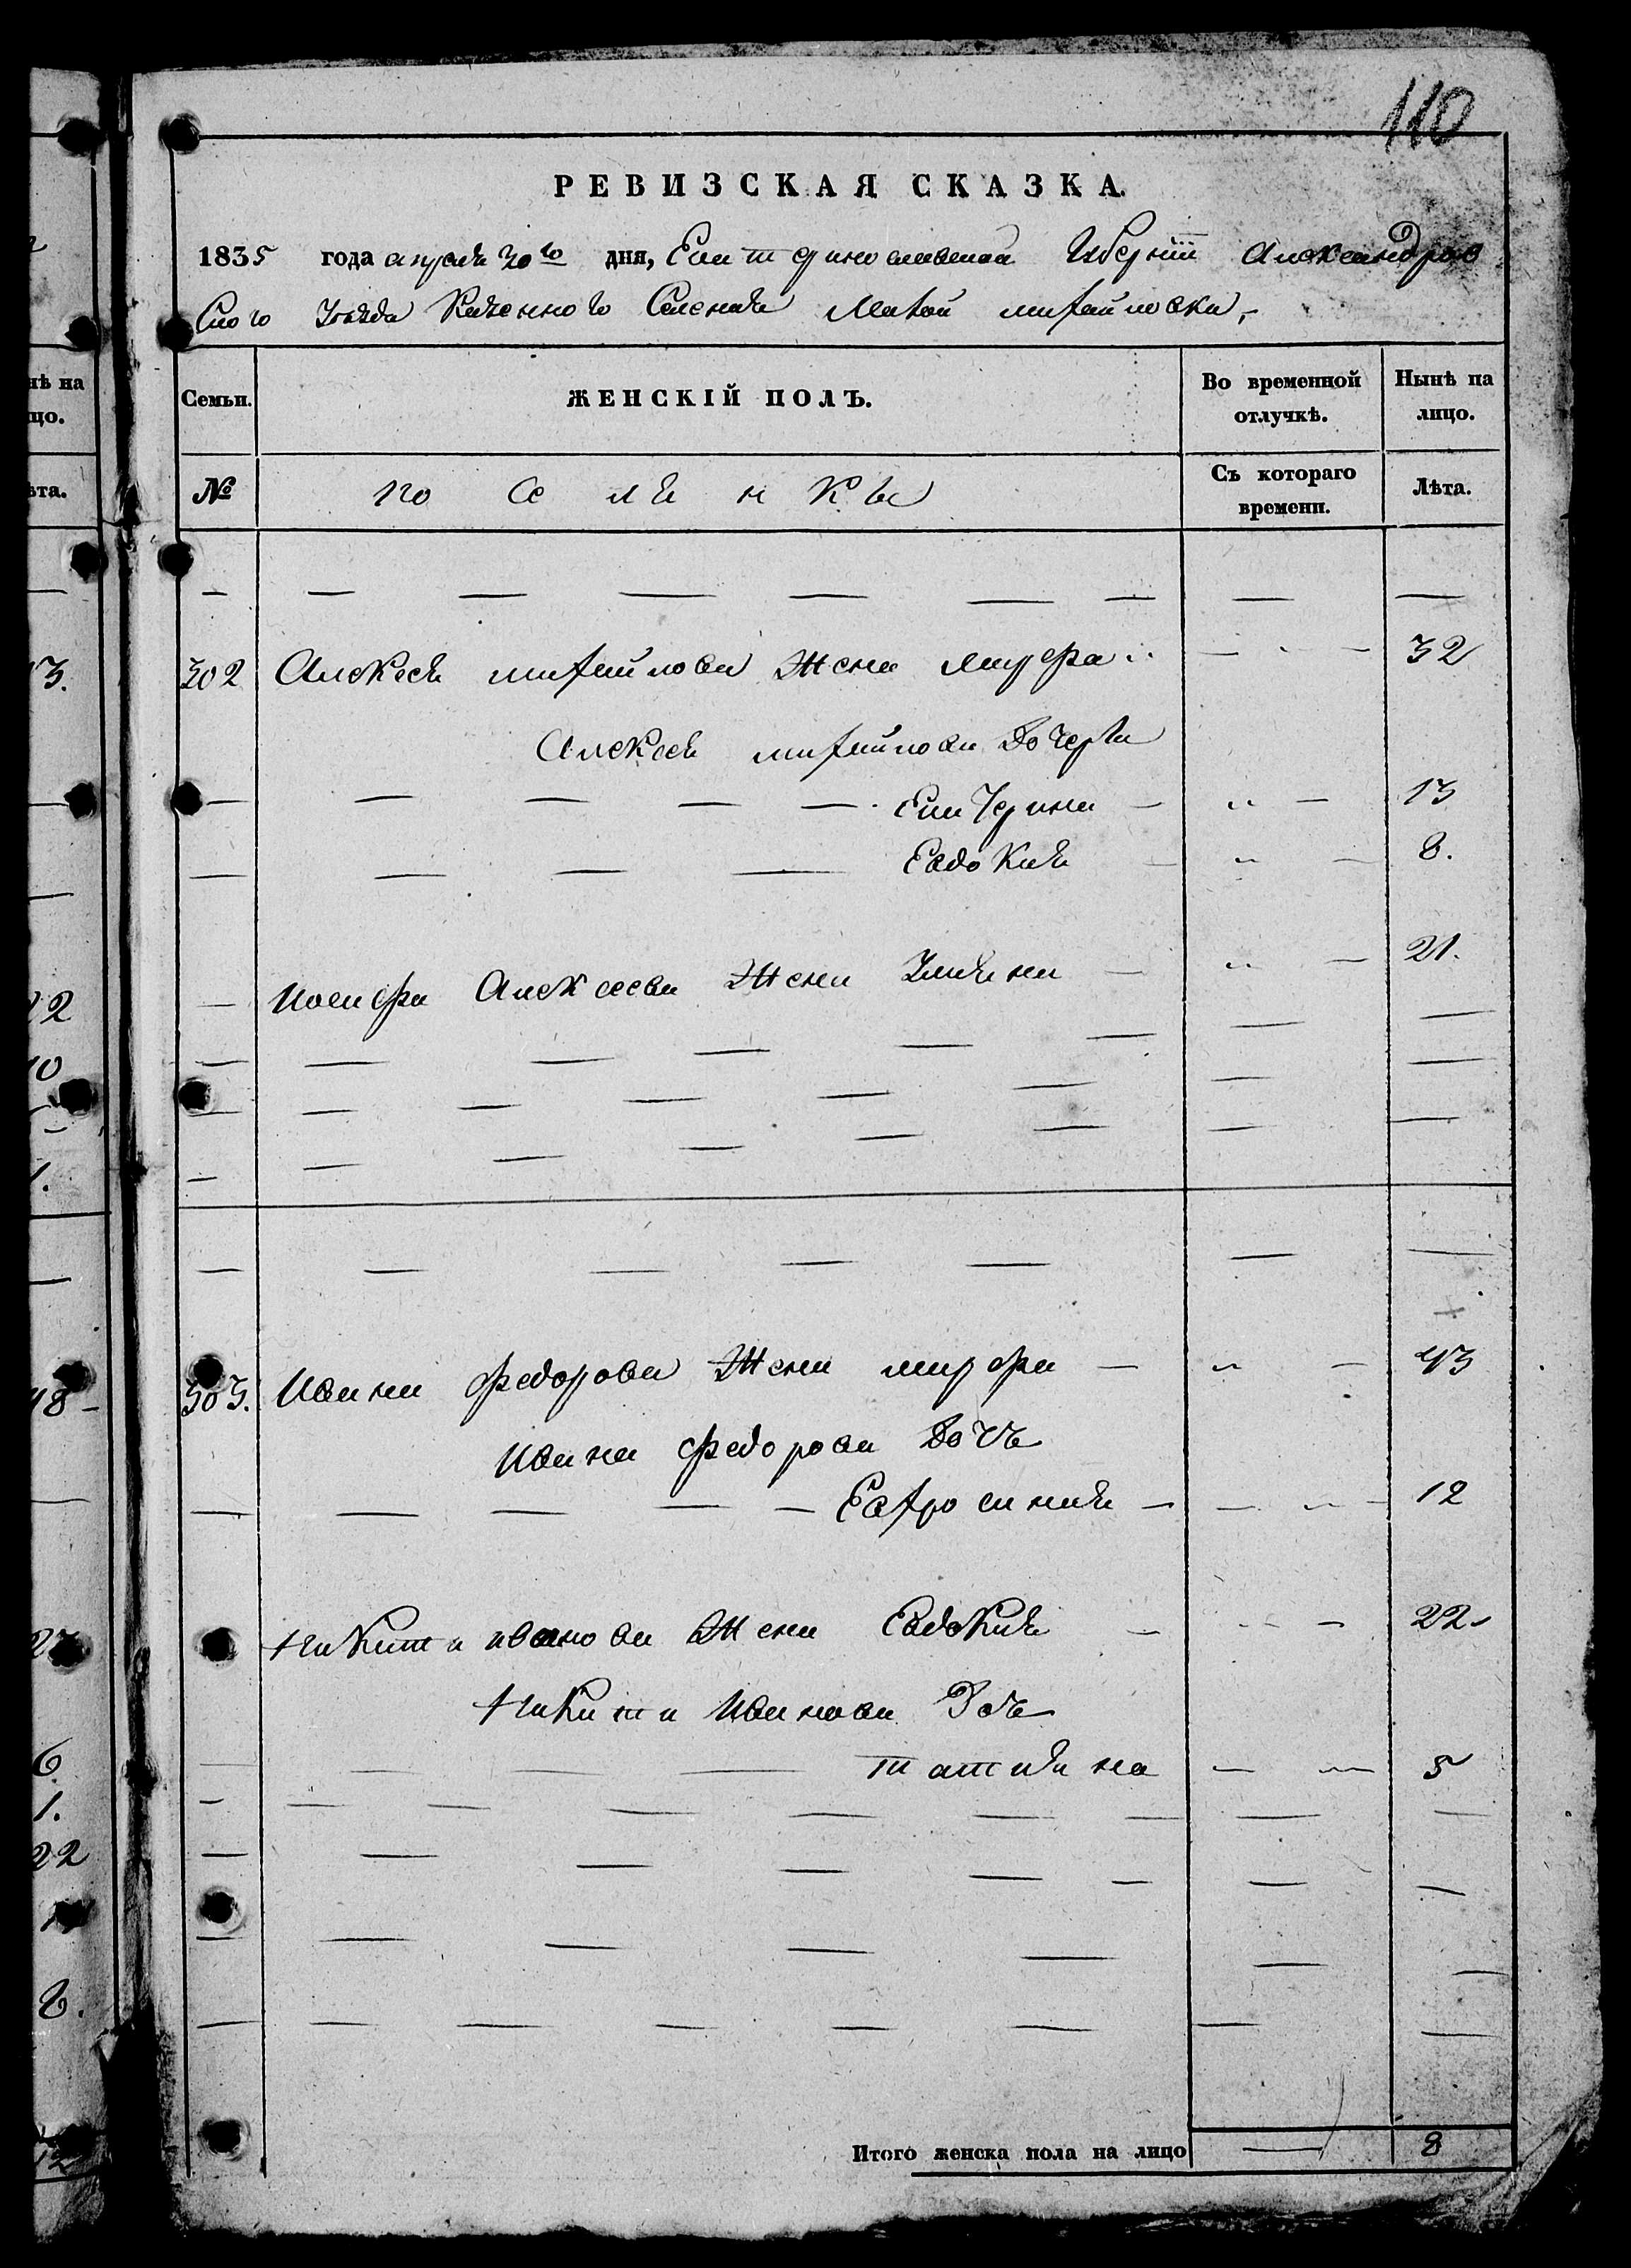 110
РЕВИЗСКАЯ СКАЗКА.
1835 года апреля 30го дня, Екатеринославской Губернии Александров
ского Уезда Казенного Селения Малой михайловки,
Семьи.
ЖЕНСКІЙ ПОЛЪ.
Во временной отлучкѣ.
Нынѣ на лицо.
№
поселянки
Съ котораго времени.
Лѣта.
302 Алексея михайлова жена марфа 32
Алексея михайлова дочери
Екатерина 13
Евдокия 8.
Иосифа Алексеева жена Улияна 21.
303. Ивана федорова жена марфа 43
Ивана федорова дочь
Евфросиния 12
Никити иванова жена Евдокия 22
Никити Иванова дочь
татияна 5
Итого женска пола на лицо 8
нѣ на
цо.
ѣта.
3.
22
10
1.
48
6
1.
22
8.
12